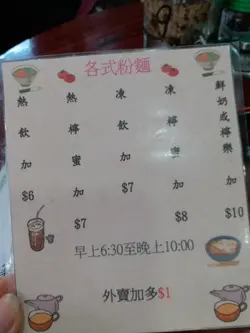 各式粉麵
熱飲加$6
熱檸蜜加$7
凍飲加$7
凍檸蜜加$8
鮮奶或檸樂加$10
早上6:30至晚上10:00
外賣加多$1